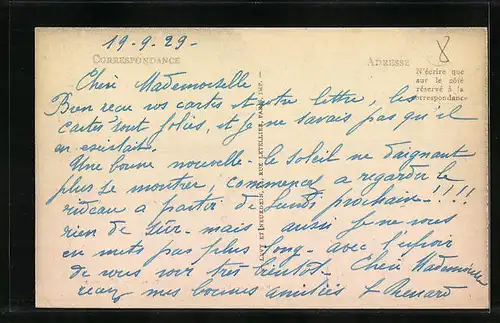 19-9-29-
CORRESPONDANCE
ADRESSE
8
N'écrire que
sur le côté
réservé à la
correspondance
Chère Mademoiselle
Bien reçu vos cartes et votre lettre, les
cartes sont jolies, et je ne savais pas qu'il
en existait.
Une bonne nouvelle - le soleil ne daignant
plus se montrer, commencez a regarder le
rideau a partir de Lundi prochain - !!!!
rien de mais aussi je ne vous
en mets pas plus long - avec l'espoir
de vous voir très bientôt - Chère Mademoiselle
recevez mes bonnes amitiés Renard
LEVY ET NEURDEIN RÉUNIS, RUE LETELLIER, PARIS, IMP. —